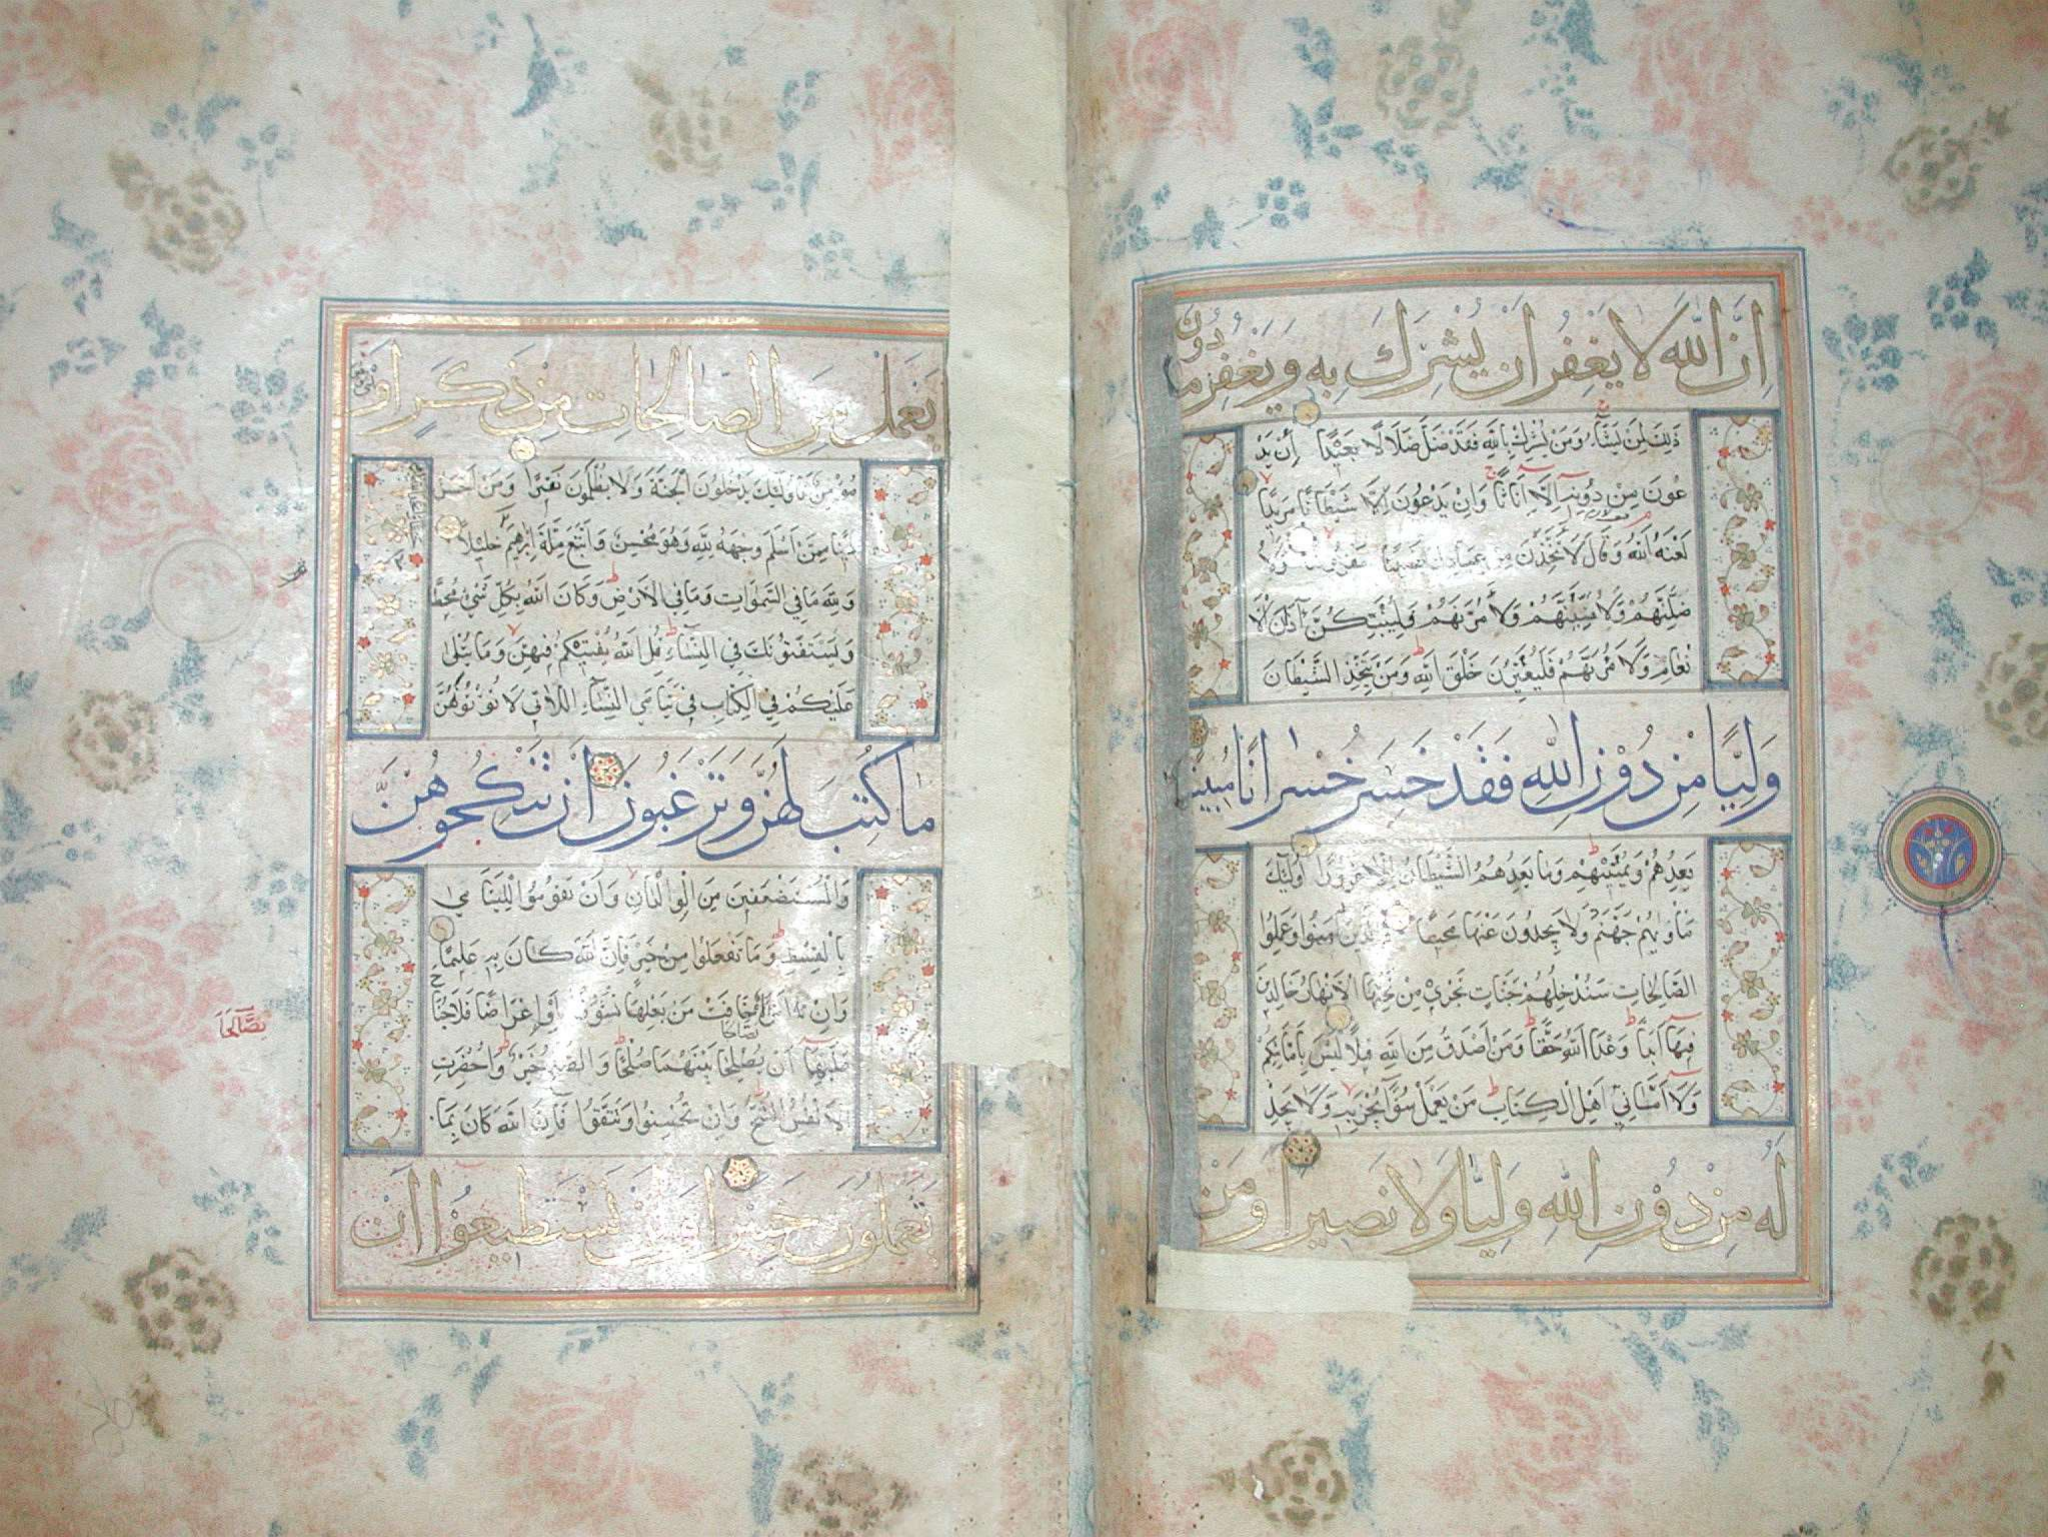 اِنَّ اللّٰهَ لَا يَغْفِرُ اَنْ يُشْرَكَ بِهٖ وَيَغْفِرُ مَا دُوْنَ
ذٰلِكَ لِمَنْ يَشَآءُ وَمَنْ يُشْرِكْ بِاللّٰهِ فَقَدْ ضَلَّ ضَلَالًا بَعِيْدًا اِنْ يَدْ
عُوْنَ مِنْ دُوْنِهٖ اِلَّا اِنَاثًا وَاِنْ يَدْعُوْنَ اِلَّا شَيْطَانًا مَرِيْدًا
لَعَنَهُ اللّٰهُ وَقَالَ لَاَتَّخِذَنَّ مِنْ عِبَادِكَ نَصِيْبًا مَفْرُوْضًا وَلَاُ
ضِلَّنَّهُمْ وَلَاُمَنِّيَنَّهُمْ وَلَاٰمُرَنَّهُمْ فَلَيُبَتِّكُنَّ اٰذَانَ الْاَ
نْعَامِ وَلَاٰمُرَنَّهُمْ فَلَيُغَيِّرُنَّ خَلْقَ اللّٰهِ وَمَنْ يَتَّخِذِ الشَّيْطَانَ
وَلِيًّا مِنْ دُوْنِ اللّٰهِ فَقَدْ خَسِرَ خُسْرَانًا مُبِيْنًا
يَعِدُهُمْ وَيُمَنِّيْهِمْ وَمَا يَعِدُهُمُ الشَّيْطَانُ اِلَّا غُرُوْرًا اُولٰئِكَ
مَاْوٰيهُمْ جَهَنَّمُ وَلَا يَجِدُوْنَ عَنْهَا مَحِيْصًا وَالَّذِيْنَ اٰمَنُوْا وَعَمِلُوا
الصَّالِحَاتِ سَنُدْخِلُهُمْ جَنَّاتٍ تَجْرِيْ مِنْ تَحْتِهَا الْاَنْهَارُ خَالِدِيْنَ
فِيْهَا اَبَدًا وَعْدَ اللّٰهِ حَقًّا وَمَنْ اَصْدَقُ مِنَ اللّٰهِ قِيْلًا لَيْسَ بِاَمَانِيِّكُمْ
وَلَا اَمَانِيِّ اَهْلِ الْكِتَابِ مَنْ يَعْمَلْ سُوْٓءًا يُجْزَ بِهٖ وَلَا يَجِدْ
لَهٗ مِنْ دُوْنِ اللّٰهِ وَلِيًّا وَلَا نَصِيْرًا وَمَنْ
يَعْمَلْ مِنَ الصَّالِحَاتِ مِنْ ذَكَرٍ اَوْ
مُؤْمِنٌ فَاُولٰئِكَ يَدْخُلُوْنَ الْجَنَّةَ وَلَا يُظْلَمُوْنَ نَقِيْرًا وَمَنْ اَحْسَنُ
دِيْنًا مِمَّنْ اَسْلَمَ وَجْهَهٗ لِلّٰهِ وَهُوَ مُحْسِنٌ وَاتَّبَعَ مِلَّةَ اِبْرٰهِيْمَ خَلِيْلًا
وَلِلّٰهِ مَا فِي السَّمٰوَاتِ وَمَا فِي الْاَرْضِ وَكَانَ اللّٰهُ بِكُلِّ شَيْءٍ مُحِيْطًا
وَيَسْتَفْتُوْنَكَ فِي النِّسَآءِ قُلِ اللّٰهُ يُفْتِيْكُمْ فِيْهِنَّ وَمَا يُتْلٰى
عَلَيْكُمْ فِي الْكِتَابِ فِيْ يَتَامَى النِّسَآءِ اللَّاتِيْ لَا تُؤْتُوْنَهُنَّ
مَا كُتِبَ لَهُنَّ وَتَرْغَبُوْنَ اَنْ تَنْكِحُوْهُنَّ
وَالْمُسْتَضْعَفِيْنَ مِنَ الْوِلْدَانِ وَاَنْ تَقُوْمُوْا لِلْيَتَامٰى
بِالْقِسْطِ وَمَا تَفْعَلُوْا مِنْ خَيْرٍ فَاِنَّ اللّٰهَ كَانَ بِهٖ عَلِيْمًا
وَاِنِ امْرَاَةٌ خَافَتْ مِنْ بَعْلِهَا نُشُوْزًا اَوْ اِعْرَاضًا فَلَا جُنَاحَ
يَصَّالَحَا
عَلَيْهِمَا اَنْ يُصْلِحَا بَيْنَهُمَا صُلْحًا وَالصُّلْحُ خَيْرٌ وَاُحْضِرَتِ
الْاَنْفُسُ الشُّحَّ وَاِنْ تُحْسِنُوْا وَتَتَّقُوْا فَاِنَّ اللّٰهَ كَانَ بِمَا
تَعْمَلُوْنَ خَبِيْرًا وَلَنْ تَسْتَطِيْعُوْا اَنْ
يَصَّالَحَا